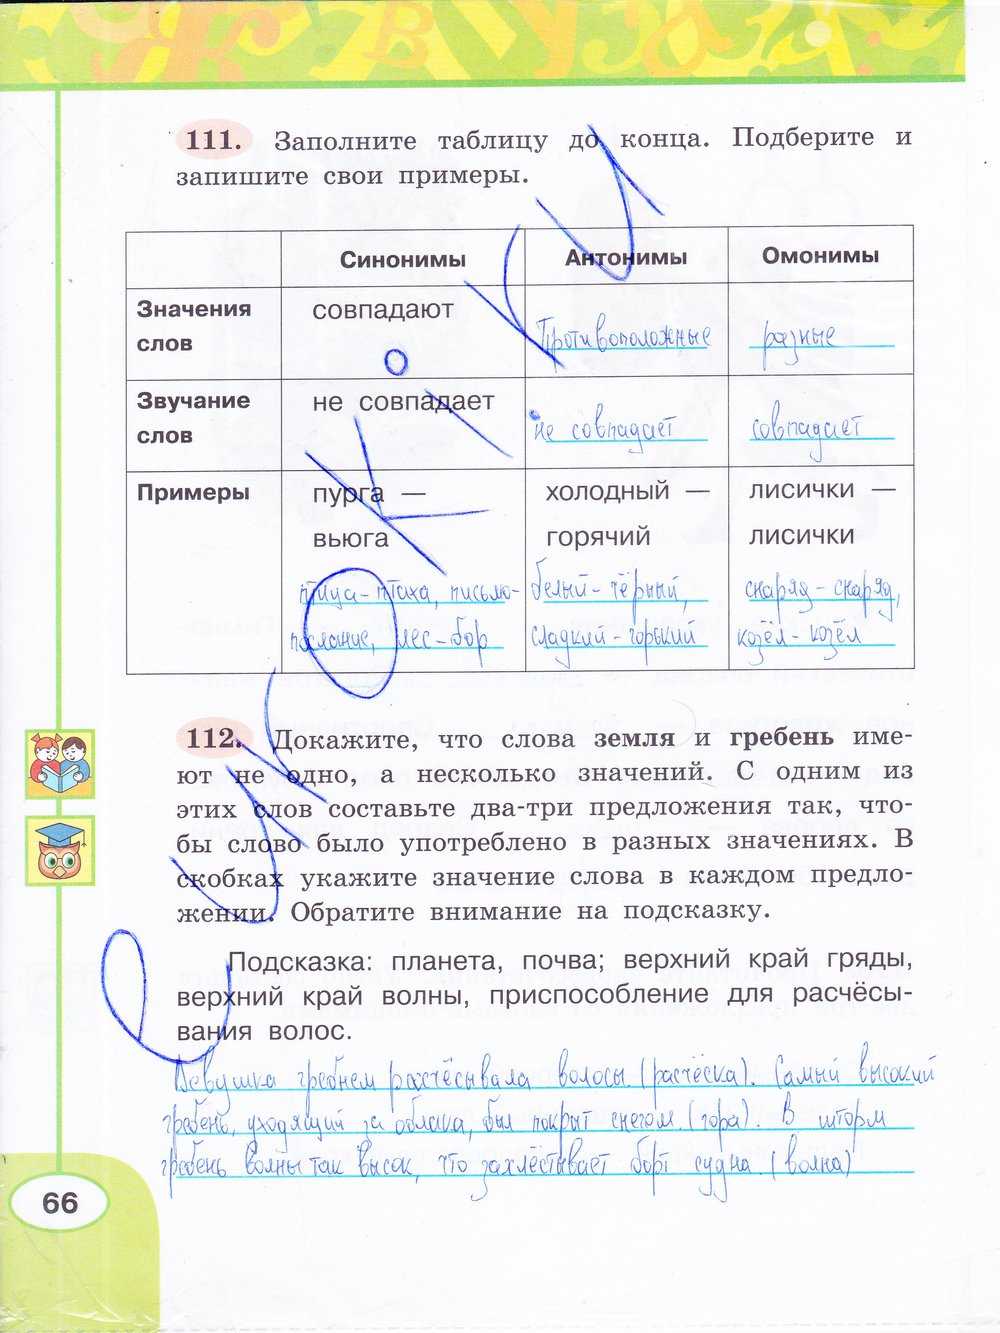 Ж В А У З А Я
111. Заполните таблицу до конца. Подберите и
запишите свои примеры.
Синонимы Антонимы Омонимы
Значения слов совпадают Противоположные разные
Звучание слов не совпадает не совпадает совпадает
Примеры пурга — холодный — лисички —
вьюга горячий лисички
птица-птаха, письмо- белый-чёрный, снаряд-снаряд,
послание, лес-бор сладкий-горький козёл-козёл
112. Докажите, что слова земля и гребень име-
ют не одно, а несколько значений. С одним из
этих слов составьте два-три предложения так, что-
бы слово было употреблено в разных значениях. В
скобках укажите значение слова в каждом предло-
жении. Обратите внимание на подсказку.
Подсказка: планета, почва; верхний край гряды,
верхний край волны, приспособление для расчёсы-
вания волос.
Девушка гребнем расчёсывала волосы (расчёска). Самый высокий
гребень, уходящий за облака, был покрыт снегом. (гора). В шторм
гребень волны так высок, что захлёстывает борт судна. (волна)
66